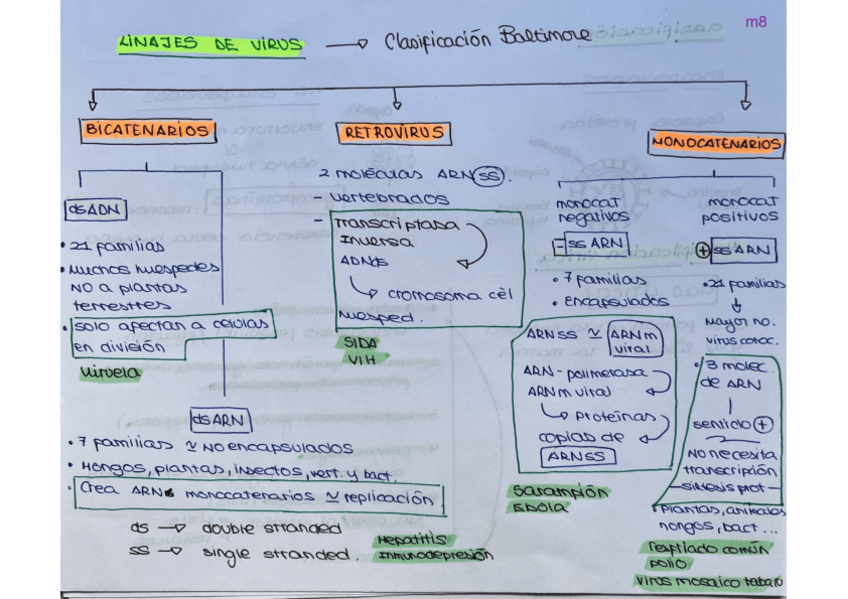 m8
LINAJES DE VIRUS → Clasificación Baltimore
BICATENARIOS
dsADN
• 21 familias
• Muchos huéspedes
NO a plantas
terrestres
• Solo afectan a células
en división
Viruela
dsARN
• 7 familias ≃ No encapsulados
• Hongos, plantas, insectos, vert. y bact.
• Crea ARNs monocatenarios ≃ replicación
ds → double stranded
ss → single stranded.
Hepatitis
Inmunodepresión
RETROVIRUS
2 moléculas ARN ss.
- vertebrados
- Transcriptasa
Inversa
ADNds
↳ cromosoma cél
huésped.
SIDA
VIH
MONOCATENARIOS
monocat
negativos
- ssARN
• 7 familias
• Encapsulados
ARNss ≃ ARNm
viral
ARN-polimerasa
ARNm viral
↳ Proteínas
copias de
ARNSS
Sarampión
Ebola
monocat
positivos
+ ssARN
• 21 familias
↓
Mayor no.
virus conoc.
• 3 molec.
de ARN
|
sentido +
NO necesita
transcripción
-síntesis prot-
Plantas, animales
hongos, bact...
resfriado común
polio
virus mosaico tabaco